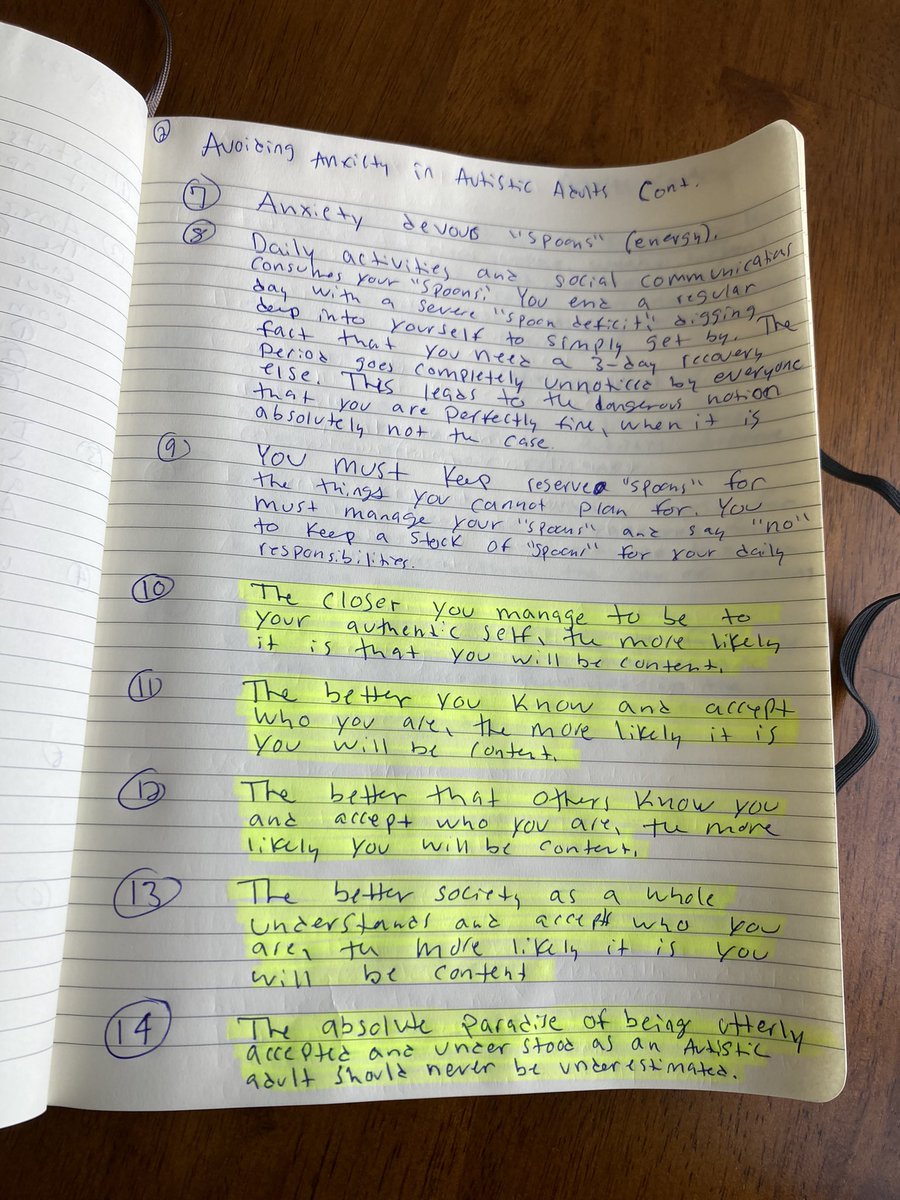 ②
Avoiding Anxiety in Autistic Adults Cont.
⑦ Anxiety devours "spoons" (energy).
⑧ Daily activities and social communications
consumes your "spoons." You end a regular
day with a severe "spoon deficit," digging
deep into yourself to simply get by. The
fact that you need a 3-day recovery
period goes completely unnoticed by everyone
else. This leads to the dangerous notion
that you are perfectly fine, when it is
absolutely not the case.
⑨ You must keep reserve "spoons" for
the things you cannot plan for. You
must manage your "spoons" and say "no"
to keep a stock of "spoons" for your daily
responsibilities.
⑩ The closer you manage to be to
your authentic self, the more likely
it is that you will be content.
⑪ The better you know and accept
who you are, the more likely it is
you will be content.
⑫ The better that others know you
and accept who you are, the more
likely you will be content.
⑬ The better society as a whole
understands and accepts who you
are, the more likely it is you
will be content
⑭ The absolute paradise of being utterly
accepted and understood as an Autistic
adult should never be underestimated.